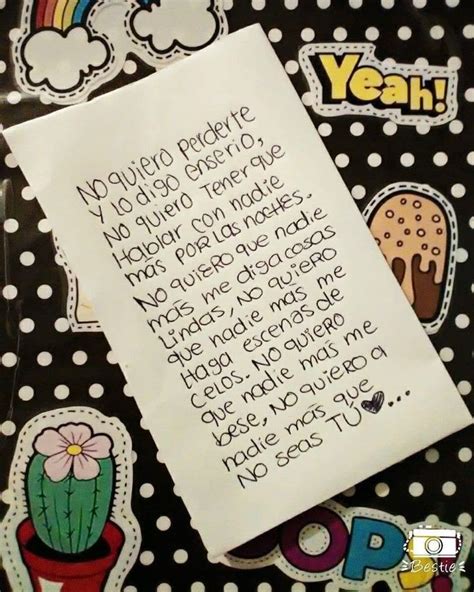 Yeah!
NO QUIERO PERDERTE
Y LO DIGO ENSERIO,
NO QUIERO TENER QUE
HABLAR CON NADIE
MÁS POR LAS NOCHES.
NO QUIERO QUE NADIE
MÁS ME DIGA COSAS
LINDAS, NO QUIERO
QUE NADIE MÁS ME
HAGA ESCENAS DE
CELOS. NO QUIERO
QUE NADIE MÁS ME
BESE, NO QUIERO A
NADIE MÁS QUE
NO SEAS TÚ♥...
OOPS!
Bestie